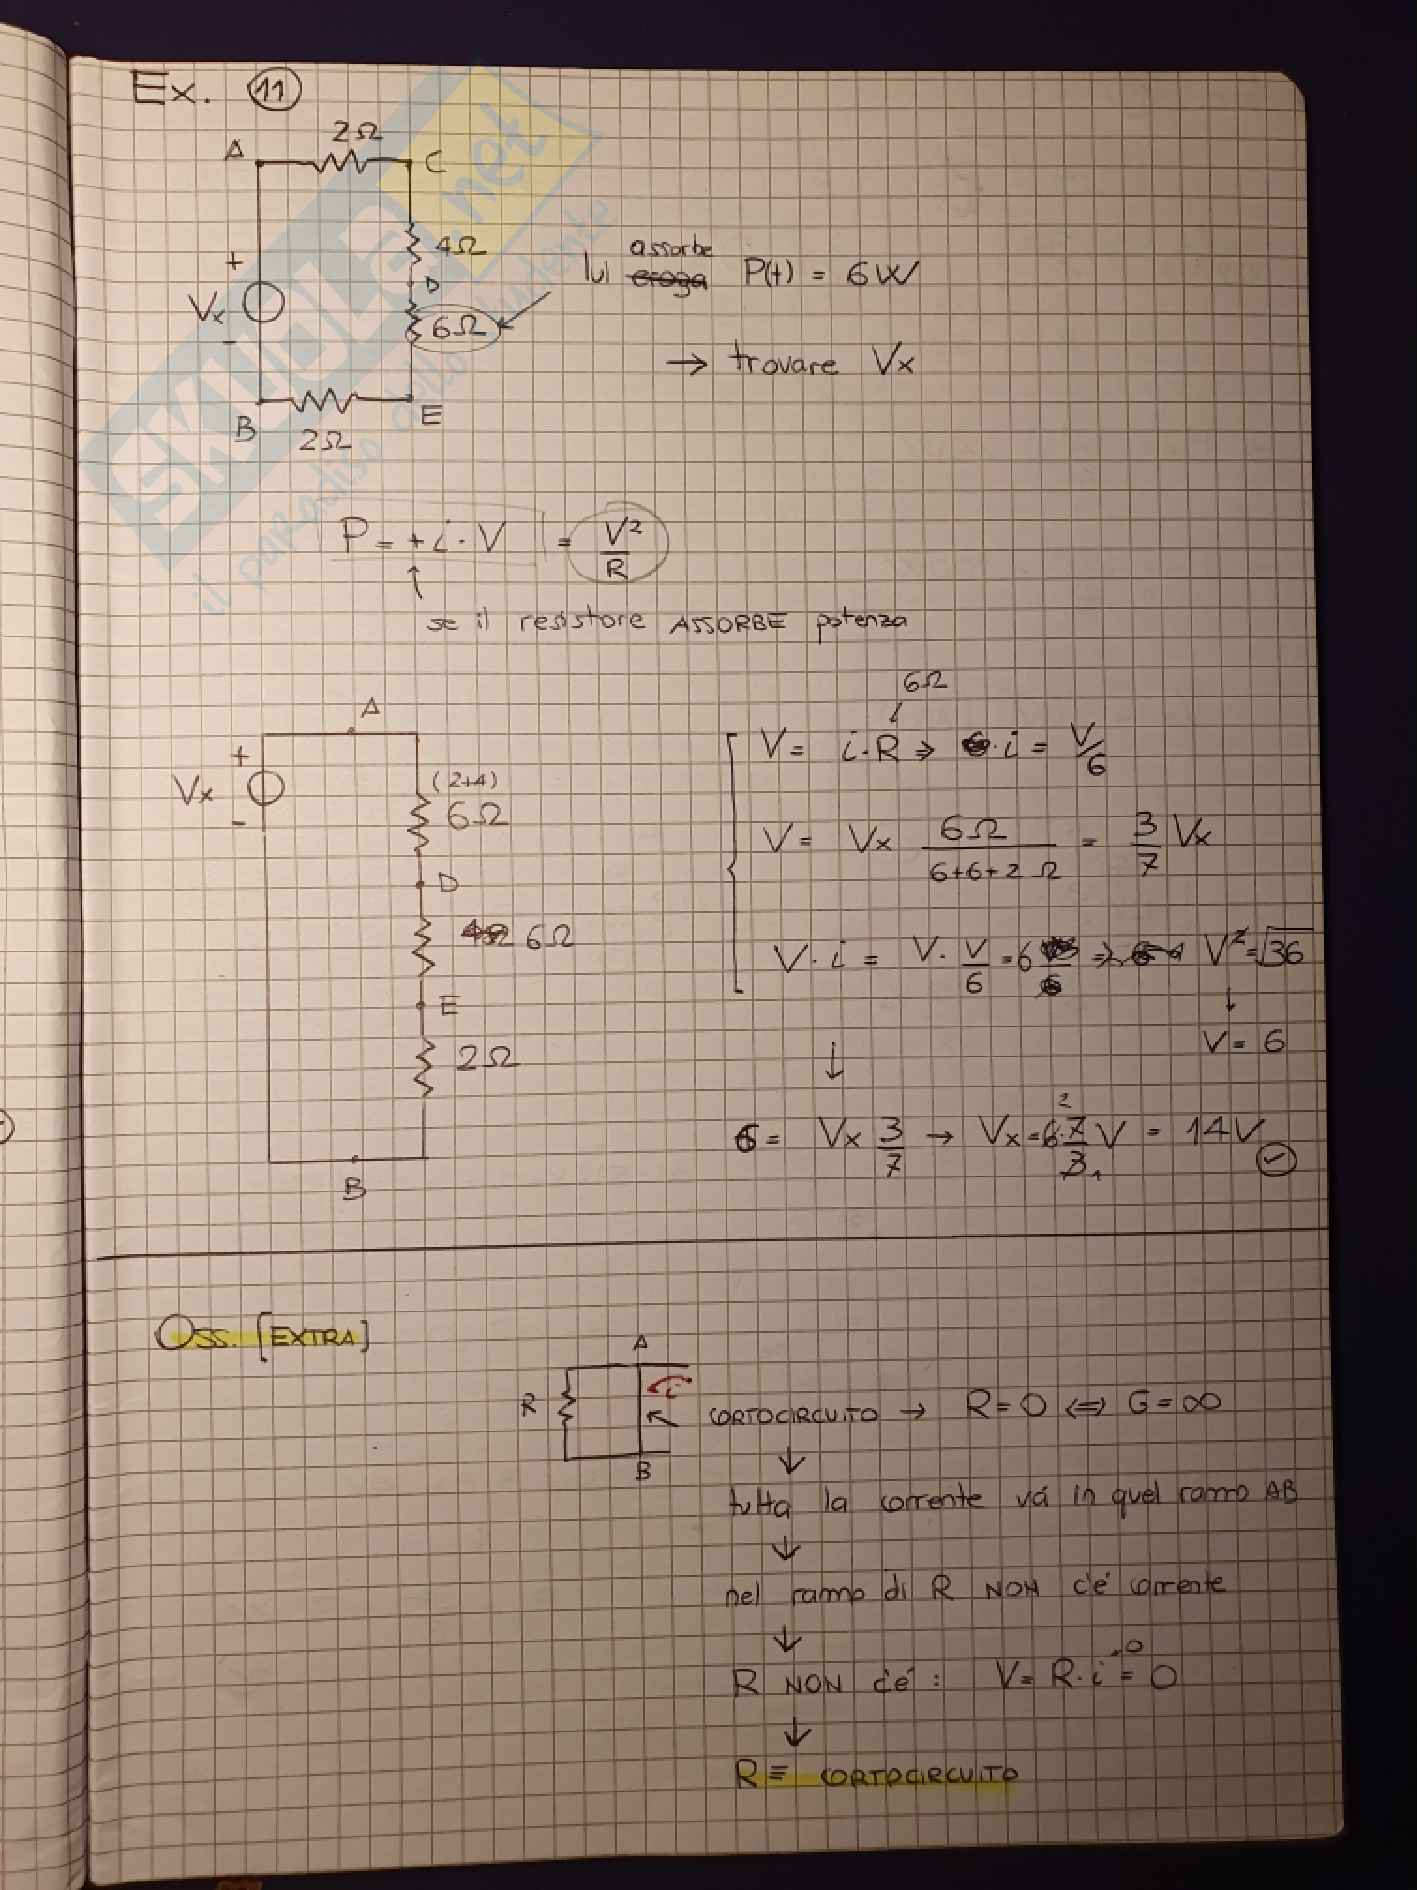 Ex. 11
2Ω
A
C
+
4Ω
D
Vx
6Ω
-
B
2Ω
E
assorbe
lui eroga P(t) = 6W
→ trovare Vx
SKUOLA.net
il paradiso dello studente
P = + i · V = V²/R
↑
se il resistore ASSORBE potenza
A
+
Vx
-
(2+4)
6Ω
D
6Ω
E
2Ω
B
6Ω
V = i · R ⇒ i = V/6
V = Vx 6Ω/(6+6+2 Ω) = 3/7 Vx
V · i = V · V/6 = 6 ⇒ V² = √36
↓
V = 6
↓
6 = Vx 3/7 → Vx = 6 · 7/3 V = 14V
2
1
Oss. [EXTRA]
A
R
i
B
CORTOCIRCUITO → R = 0 ⇔ G = ∞
↓
tutta la corrente vá in quel ramo AB
↓
nel ramo di R NON c'é corrente
↓
R NON c'é : V = R · i = 0
0
↓
R ≡ CORTOCIRCUITO